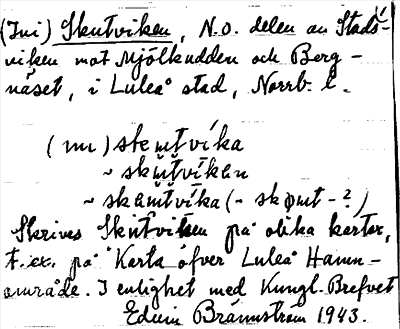 (Ini) Skutviken, N.O. delen av Stads-
viken mot Mjölkudden och Berg-
näset, i Luleå stad, Norrb. l.
(ini) skeutvika
~ skutvikan
~ skautvika (~ skøut-?)
Skrives Skutviken på olika kartor,
t.ex. på "Karta öfver Luleå Hamn-
område. I enlighet med Kungl. Brefvet
Edvin Brännström 1943.